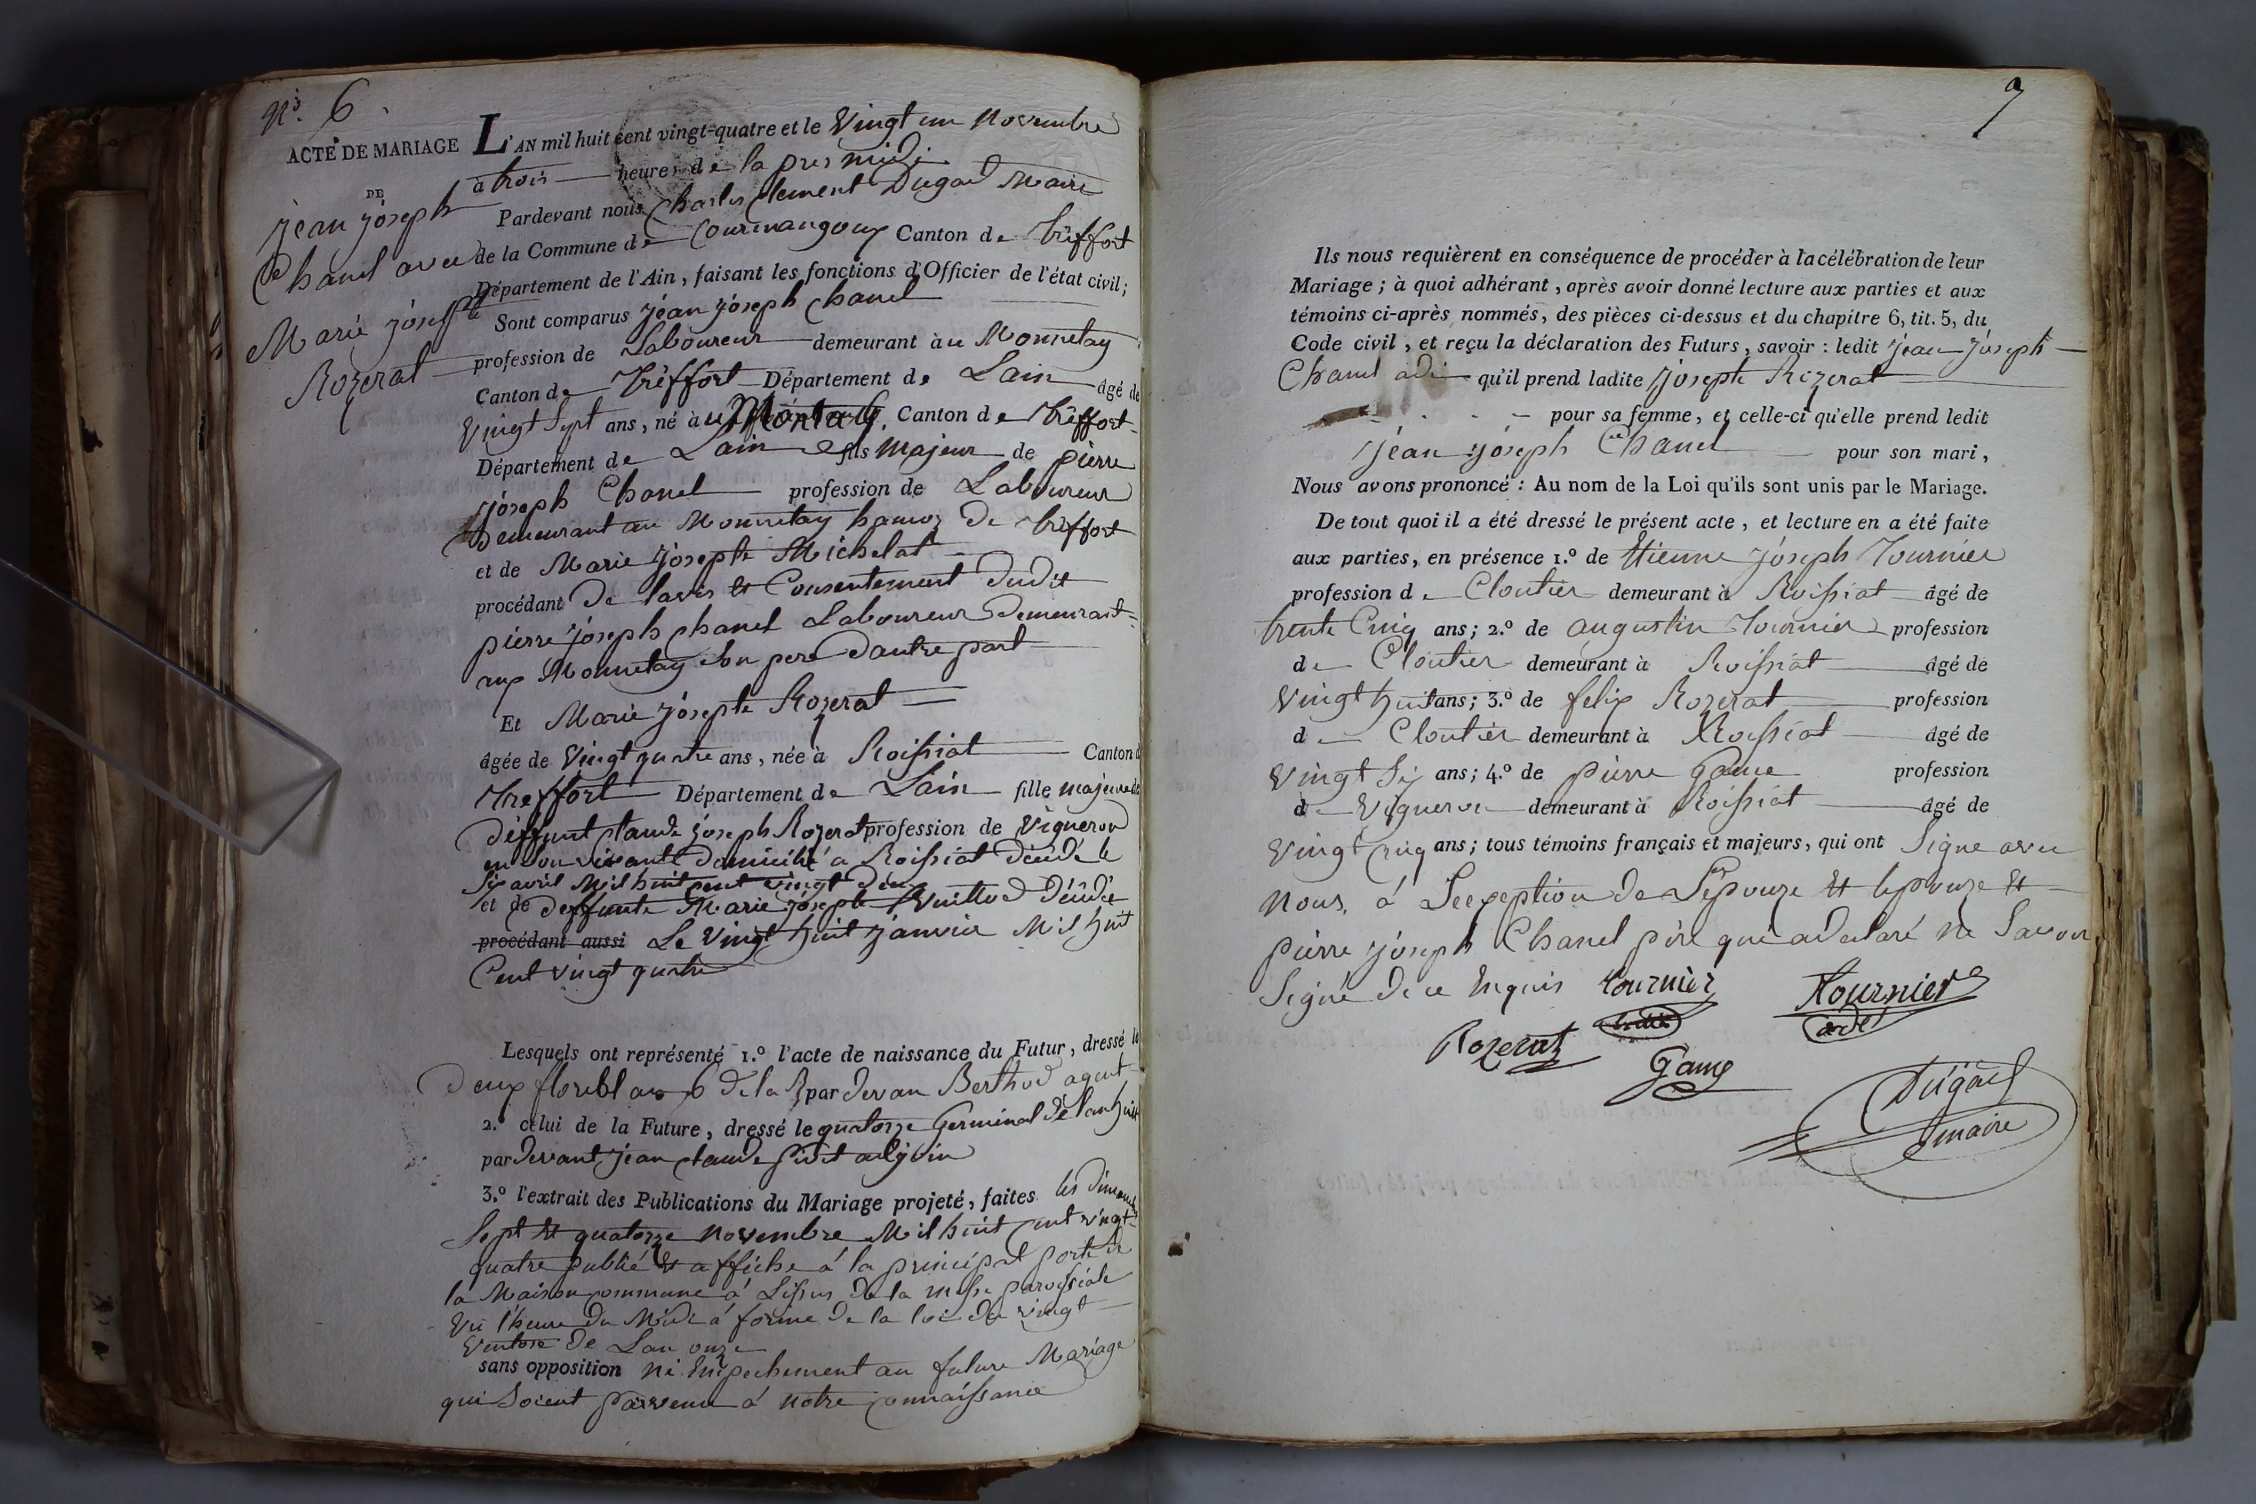 N.º 6
ACTE DE MARIAGE
DE
jean joseph
Chanel avec
Marie josephte
Rozerat
L'AN mil huit cent vingt-quatre et le vingt un novembre
à trois heures de la pres midi
Pardevant nous Charles Clement Dugad Maire
de la Commune de Courmangoux Canton de treffort
Département de l'Ain, faisant les fonctions d'Officier de l'état civil;
Sont comparus jean joseph chanel
profession de Laboureur demeurant à u Monnetay
Canton de Treffort Département de Lain âgé de
vingt Sept ans, né à u Canton de treffort
Département de Lain fils majeur de pierre
joseph Chanel profession de Laboureur
demeurant au Monnetay hamoz de treffort
et de Marie josephte Michelat
procédant De lavis et Consentement dudit
pierre joseph chanel Laboureur Demeurant
aux Monnetay Son pere Dautre part
Et Marie josephte Rozerat
âgée de vingt quatre ans, née à Roissiat Canton d
Treffort Département de Lain fille majeure de
déffunt claude joseph Rozerat profession de vigneron
en son vivant domicilié a Roissiat décédé le
Six avril Mil huit cent vingt deux
et de deffunte Marie josephte Vuittod décédée
procédant aussi Le vingt huit janvier Mil huit
Cent vingt quatre
Lesquels ont représenté 1.º l'acte de naissance du Futur, dressé le
deux floréal an 6 de la R par devan Berthod agent
2.º celui de la Future, dressé le quatorze Germinal de lan huit
par devant jean claude pivet adjoin
3.º l'extrait des Publications du Mariage projeté, faites les dimanch
Sept et quatorze novembre Mil huit cent vingt
quatre publié et affiché á la principal porte de
la Maison commune á Lissus de la messe paroissiale
vu l'heure du Midi á forme de la loi du vingt
ventose de Lan onze
sans opposition ni Empechement au future Mariage
qui Soient parvenu á notre connaissance
7
Ils nous requièrent en conséquence de procéder à la célébration de leur
Mariage; à quoi adhérant, après avoir donné lecture aux parties et aux
témoins ci-après nommés, des pièces ci-dessus et du chapitre 6, tit. 5, du
Code civil, et reçu la déclaration des Futurs, savoir: ledit jean joseph
Chanel qu'il prend ladite josephte Rozerat
pour sa femme, et celle-ci qu'elle prend ledit
jean joseph Chanel pour son mari,
Nous avons prononcé: Au nom de la Loi qu'ils sont unis par le Mariage.
De tout quoi il a été dressé le présent acte, et lecture en a été faite
aux parties, en présence 1.º de Etienne joseph Tournier
profession de Cloutier demeurant à Roissiat âgé de
trente Cinq ans; 2.º de augustin Tournier profession
de Cloutier demeurant à Roissiat âgé de
vingt huit ans; 3.º de felix Rozerat profession
de Cloutier demeurant à Roissiat âgé de
vingt Six ans; 4.º de pierre Game profession
de vigneron demeurant à Roissiat âgé de
vingt cinq ans; tous témoins français et majeurs, qui ont Signe avec
nous, á Lecxeption de Lépouze et lepouze et
pierre joseph Chanel père qui a declaré ne Savoir
Signé de ce Enquis Tournier Tournier
Rozerat Game
Dugad
maire